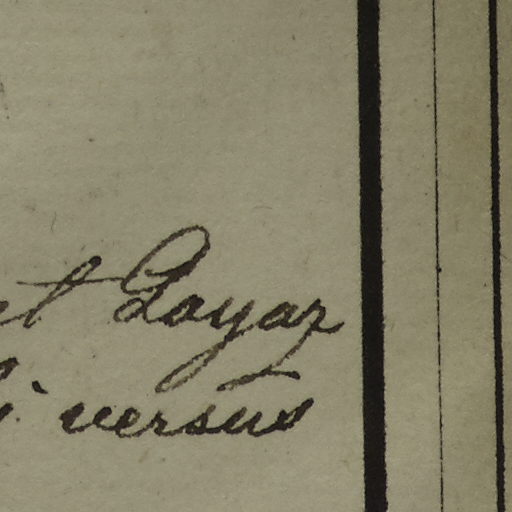 et Goyaz
i. versus